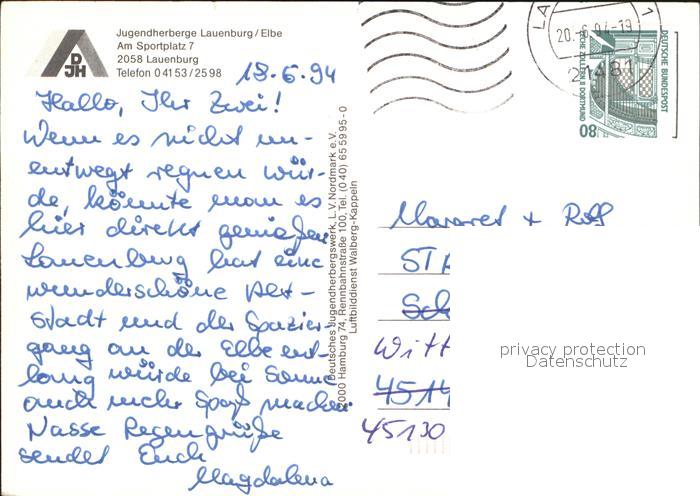 Jugendherberge Lauenburg/Elbe
Am Sportplatz 7
2058 Lauenburg
Telefon 0 41 53 / 25 98
DJH
18.6.94
Hallo, Ihr Zwei!
Wenn es nicht un-
entwegt regnen wür-
de, könnte man es
hier direkt genießen.
Lauenburg hat eine
wunderschöne Alt-
stadt und der Spazier-
gang an der Elbe ent-
lang würde bei Sonne
auch mehr Spaß machen
Nasse Regengrüße
sendet Euch
Magdalena
Deutsches Jugendherbergswerk, L.V. Nordmark e.V.
2000 Hamburg 74, Rennbahnstraße 100, Tel. (040) 655995-0
Luftbilddienst Walberg-Kappeln
LA
20.-6.94-19
1
21481
DEUTSCHE BUNDESPOST
ZECHE ZOLLERN II DORTMUND
80
Margret + Rolf
Sch
Witt
4514
45130
privacy protection
Datenschutz